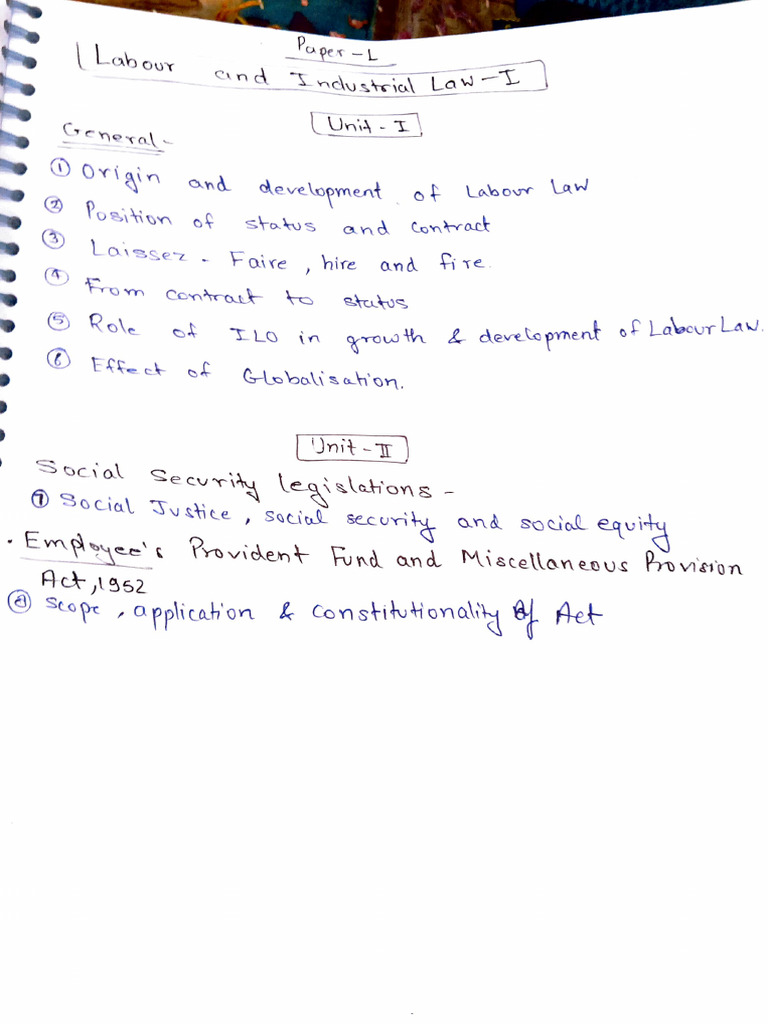 Paper - I
Labour and Industrial Law - I
Unit - I
General -
① Origin and development of Labour Law
② Position of status and contract
③ Laissez - Faire, hire and fire.
④ From contract to status
⑤ Role of ILO in growth & development of Labour Law.
⑥ Effect of Globalisation.
Unit - II
Social Security legislations -
⑦ Social Justice, social security and social equity
• Employee's Provident Fund and Miscellaneous Provision
Act, 1952
⑧ Scope, application & constitutionality of Act